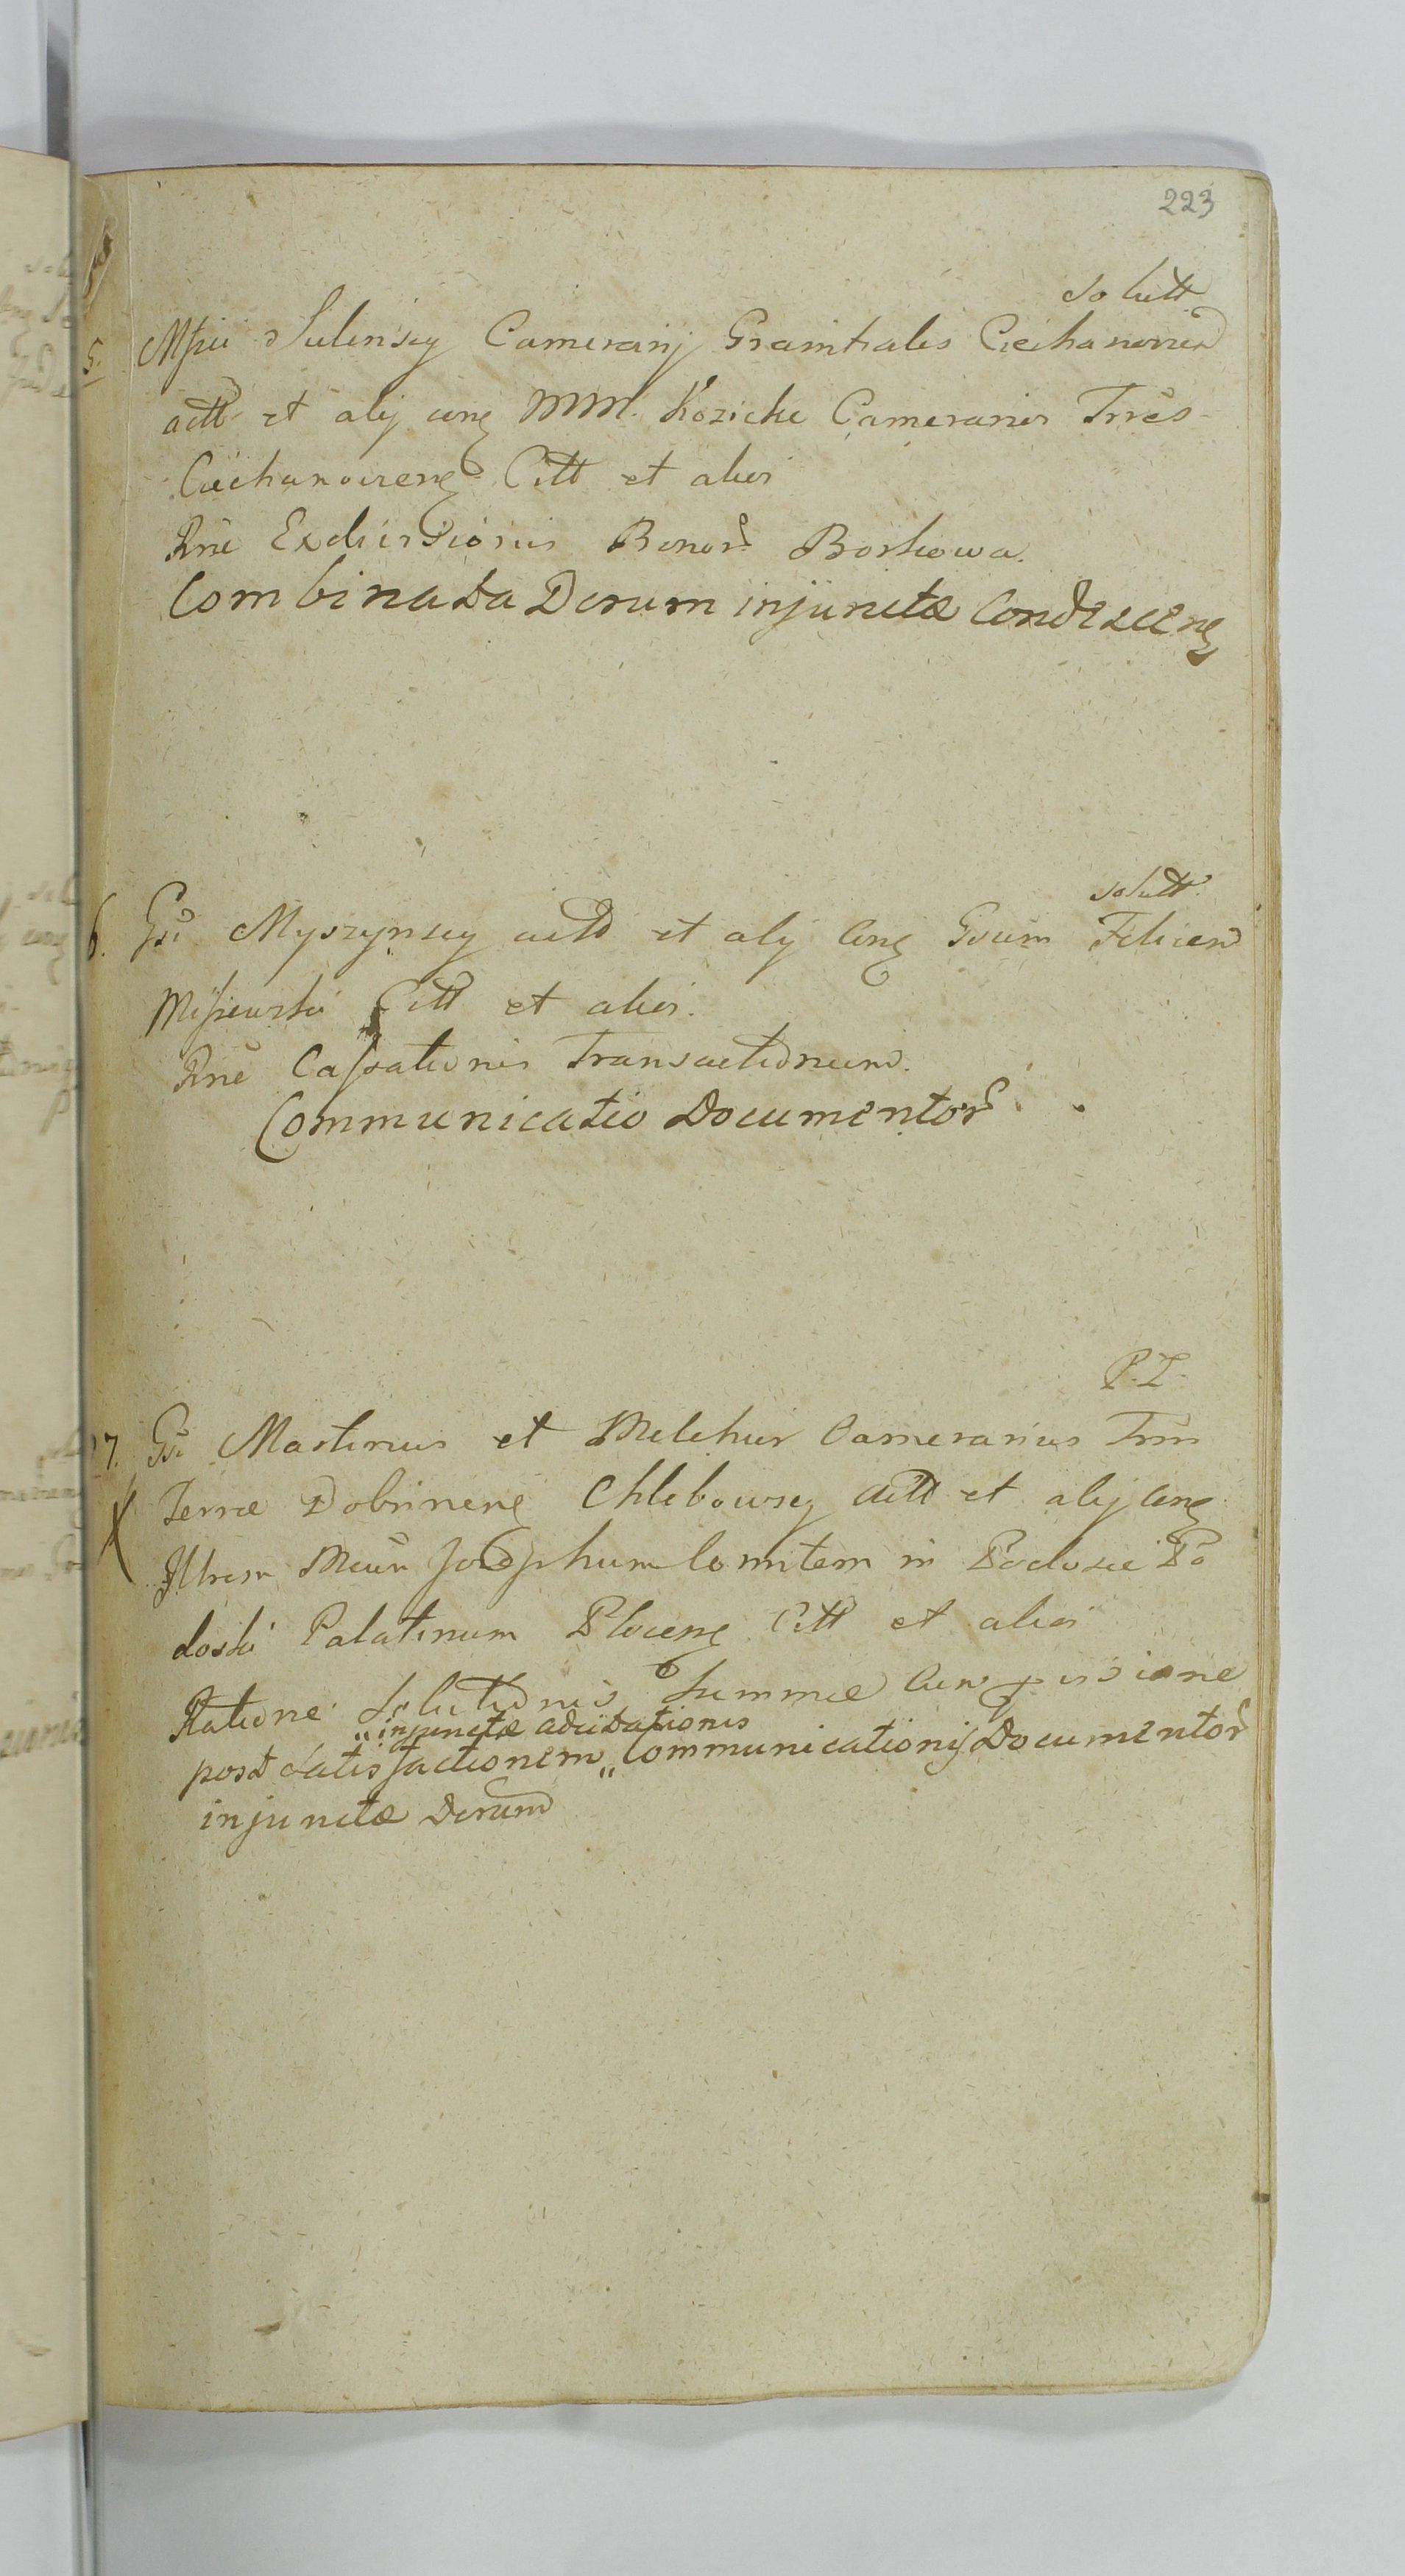 223
solutt
5. Mpci Sulinscy Camerarij Granitiales Ciechanonen
actt et alij cong MM. Kozicki Camerarios Trrēs
Ciechanovieng Citt et alios
Rnē Exdivisionis Bonor Borkowa.
Combinata Dorum injunctæ Condescen
solutt
6. Gsi Myszynscy actt et alij cong Gsum Felicem
Missiewski Citt et alios.
Rnē Cassationis Transactionum.
Communicatio Documentor
P. I.
7. Gsi Martinus et Melchior Camerarius Trris
Terræ Dobrineng Chlebowscy actt et alij cong
Illrem Mcum Josephum Comitem in Podosie Po
doski Palatinum Ploceng Citt et alios
Ratione Solutionis Summæ
„injunctæ adcitationis
post satisfactionem „ Communicationis Documentor
injunctæ Dorum